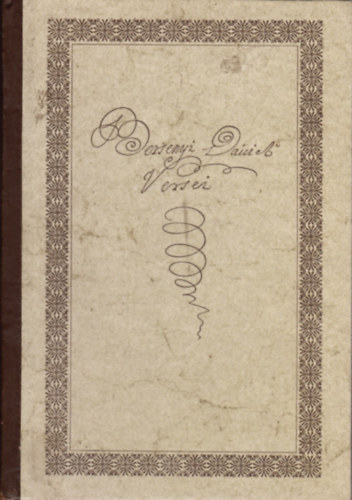 Berzsenyi Dániel
Versei